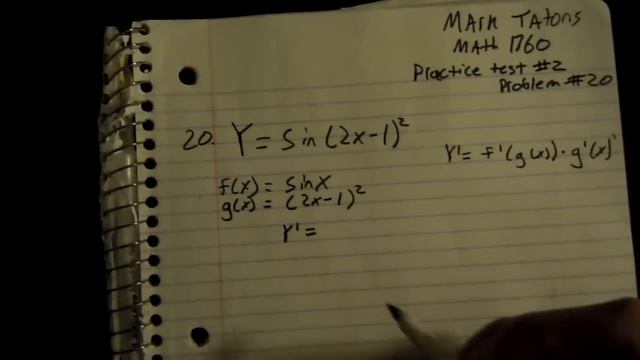 Mark Tatons
Math 1760
Practice test #2
Problem #20
20. Y = Sin (2x-1)²
Y' = f'(g(x)) · g'(x)
f(x) = sinx
g(x) = (2x-1)²
Y' =